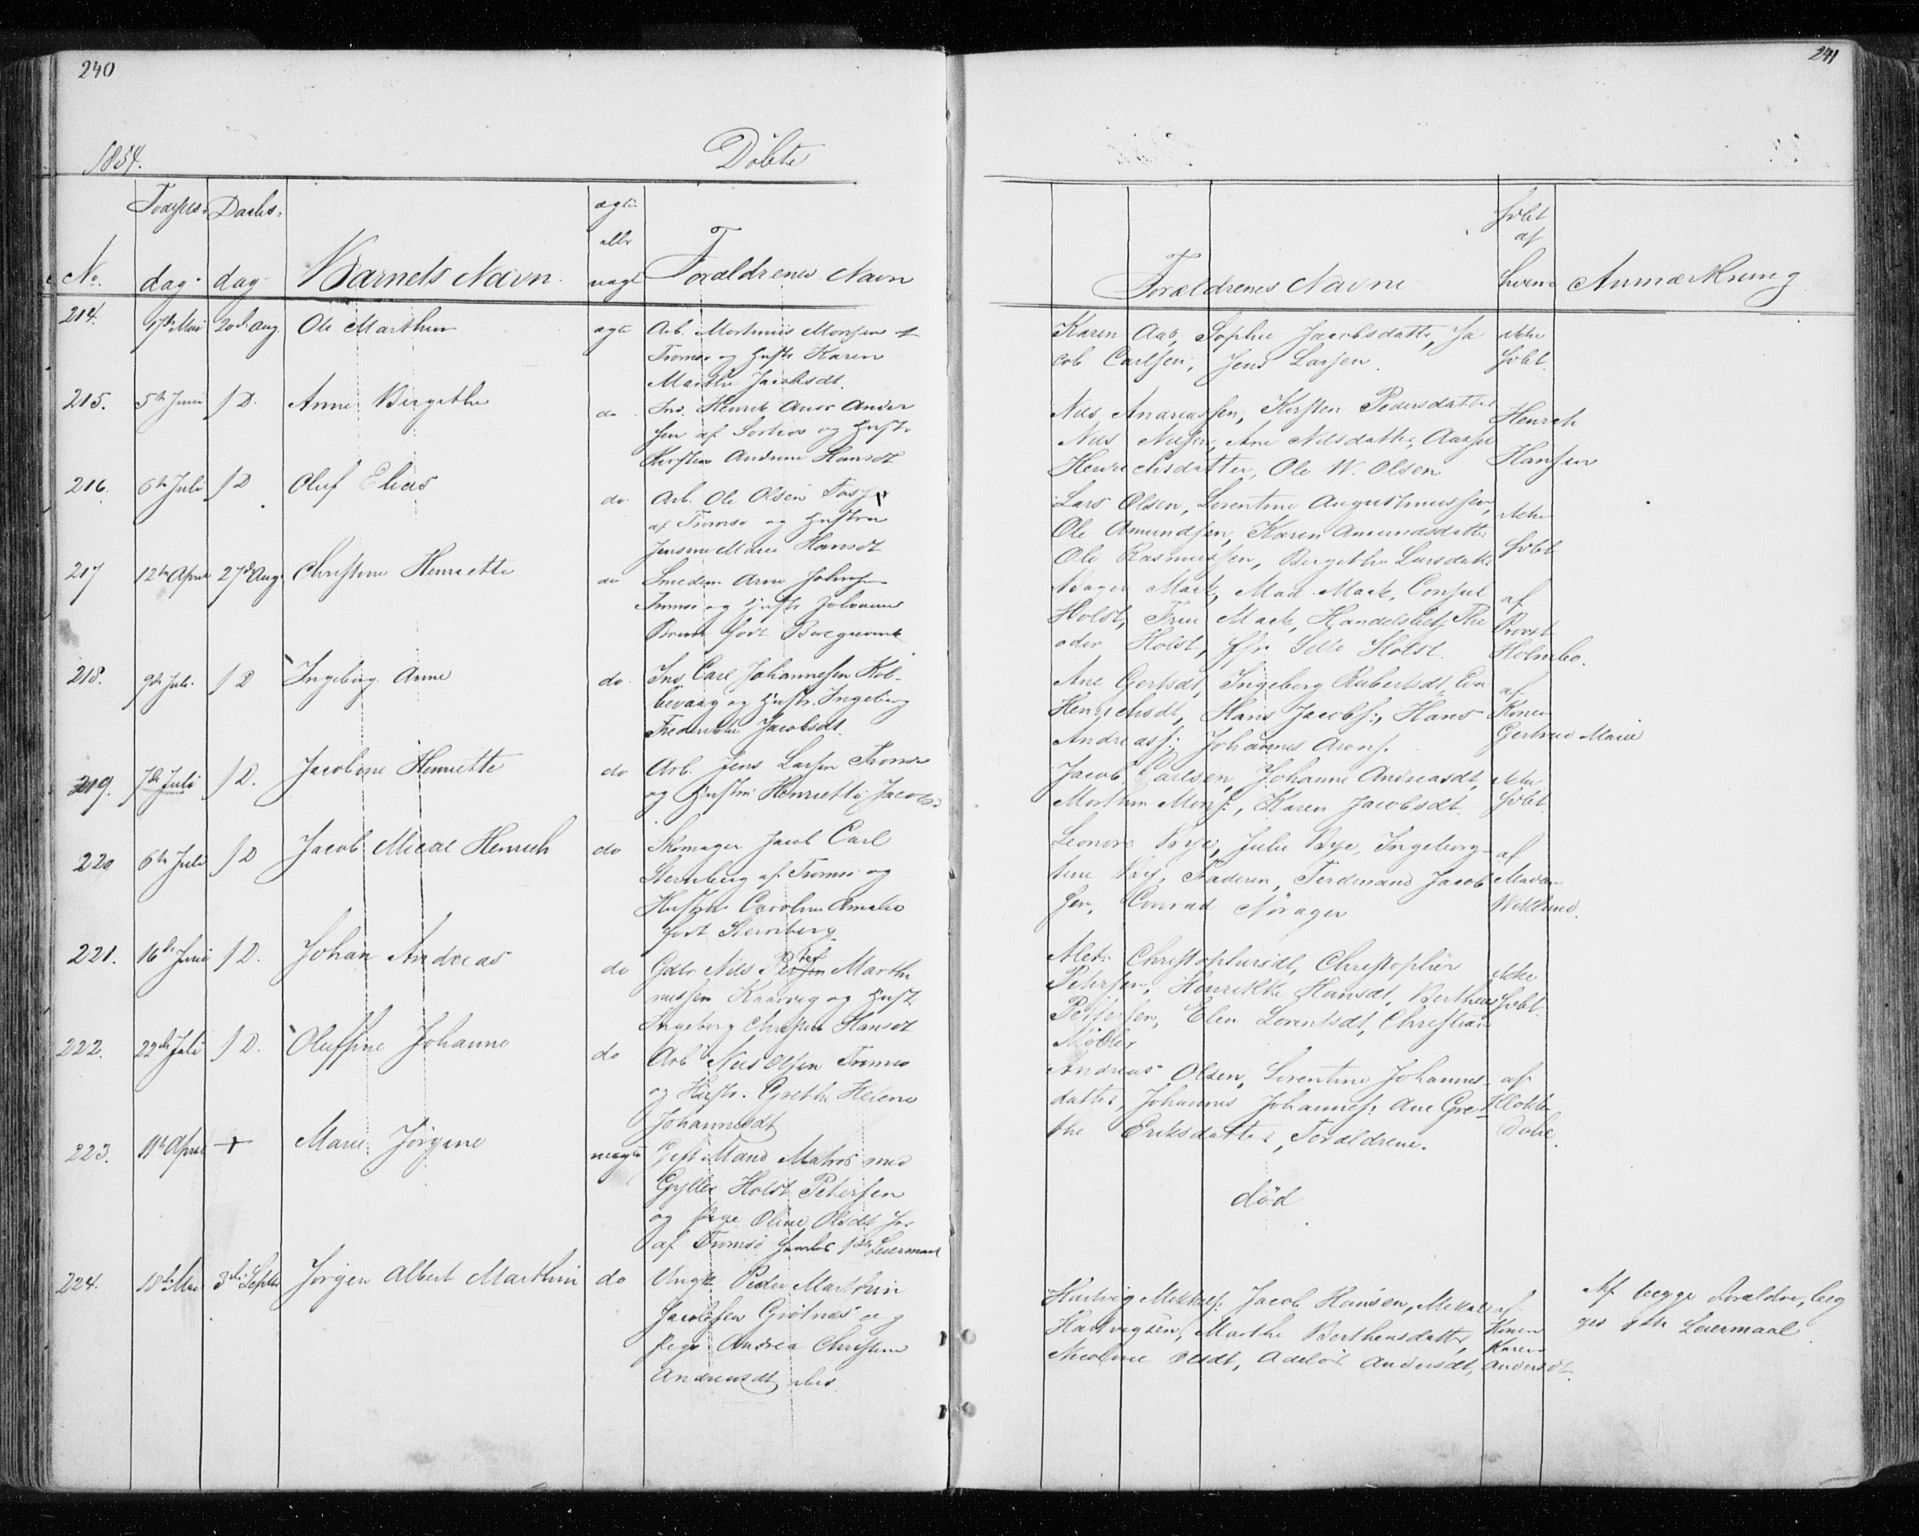 240
1854.
Döbte
No.
dag
Daabs-
dag
Barnets Navn
ægte
eller
uægte
Forældrenes Navn
214.
17de Mai
20de Aug.
Ole Marthin
ægte
Arb. Morthinus Monsen af
Tromsø og Hustr Karen
Marthe Jacobsdt.
215.
5te Juni
S D.
Anne Bergitthe
do
Ins. Henrik Anders Ander
sen af og Hustr
Kirsten Andrine Hansdt
216.
6te Juli
S D
Oluf Elias
do
Arb. Ole Olsen
af Tromsø og Hustru
Jensine Marie Hansdt
217
12te April
27de Aug.
Christine Henriette
do
Smedsv. Arne Johns
Tromsø og Hustr Johanne
født
218.
9de Juli
S D
Ingeborg Anne
do
Ins Carl Johannesen Kob-
bevaag og Hustr. Ingeborg
Frederikke Jacobsdt
219.
7de Juli
S D.
Jacobine Henriette
do
Arb. Jens Larsen Tromsø
og Hustru Henriette Jacobs:
220
6te Juli
S D
Jacob Mical Henrich
do
Skomager Jacob Carl
Sternberg af Tromsø og
Hustru Caroline Amalie
født Sternberg
221.
16de Juni
S D.
Johan Andreas
do
Gdbr Nils Marthi
nussen Kaarvig og Hustr
Ingeborg Christine Hansdt
222.
22de Juli
S D.
Oluffine Johanne
do
Arb Nils Olsen Tromsø
og Hustr. Grethe Helene
Johannesdt
223.
11te April
+
Marie Jørgine
uægte
Gift Mand Matros med
Gyller Holst Petersen
og Pige Oline Olsdt
af Tromsø 1ste Leiermaal
224.
18de Mai
3die Septbr
Jørgen Albert Marthin
do
Ungk Peder Marthin
Jacobsen Grötnæs og
Pige Andrea Christine
Andreasdt ibid.
241
Forældrenes Navne
hvem
Anmærkning
Karen Aas, Sophie Jacobsdatter, Ja
cob Carlsen, Jens Larsen.
ikke
döbt.
Nils Andreassen, Kirsten Pedersdatter
Nils Nilsen, Ane Nilsdatter, Aasel
Henrichsdatter, Ole W. Olsen
Henrich
Hansen
Lars Olsen, Lorentine Augustinussen,
Ole Amundsen, Karen Amundsdatter
Ole Rasmussen, Bergithe Larsdatter
ikke
döbt
Bager Mack, Mad. Mack, Consul
Holst, Frue Mack, Handelsbetj. The
odor Holst, Jfr. Holst.
af
Provst
Holmboe.
Ane Gertsdt, Ingeborg Robertsdt,
Henrichsdt, Hans Jacobs:, Hans
Andreass:, Johannes Arons:
af
Konen
Gertrud Marie
Jacob Carlsen, Johanne Andreasdt,
Morthin Mons:, Karen Jacobsdt
ikke
döbt
Leonore Bye, Julie Bye, Ingeborg-
Faderen, Ferdinand Jacob
sen, Conrad Nörager
af
Madam
Wiklund.
Christophersdt, Christopher
Petersen, Henrikke Hansdt, Bertheus
Pettersen, Elen Lorentsdt, Christian
Möller
ikke
döbt.
Andreas Olsen, Lorentine Johannes-
datter, Johannes Johanness: Ane Gre-
the Eriksdatter, Forældrene.
af
Klokker
död
Hartvig Mikkels: Jacob Hansen, Mikkel
Hartvigsen, Marthe Berthensdatter,
Nicoline Olsdt, Andersdt,
af
Konen
Karen
Andersdt.
Af begge Forældre, beg
ges 1ste Leiermaal.